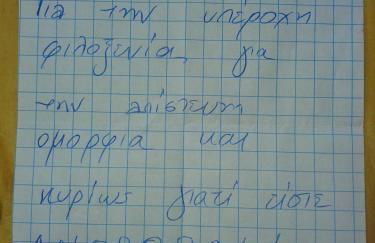 Για την υπέροχη
φιλοξενία, για
την απίστευτη
ομορφιά και
κυρίως γιατί είστε